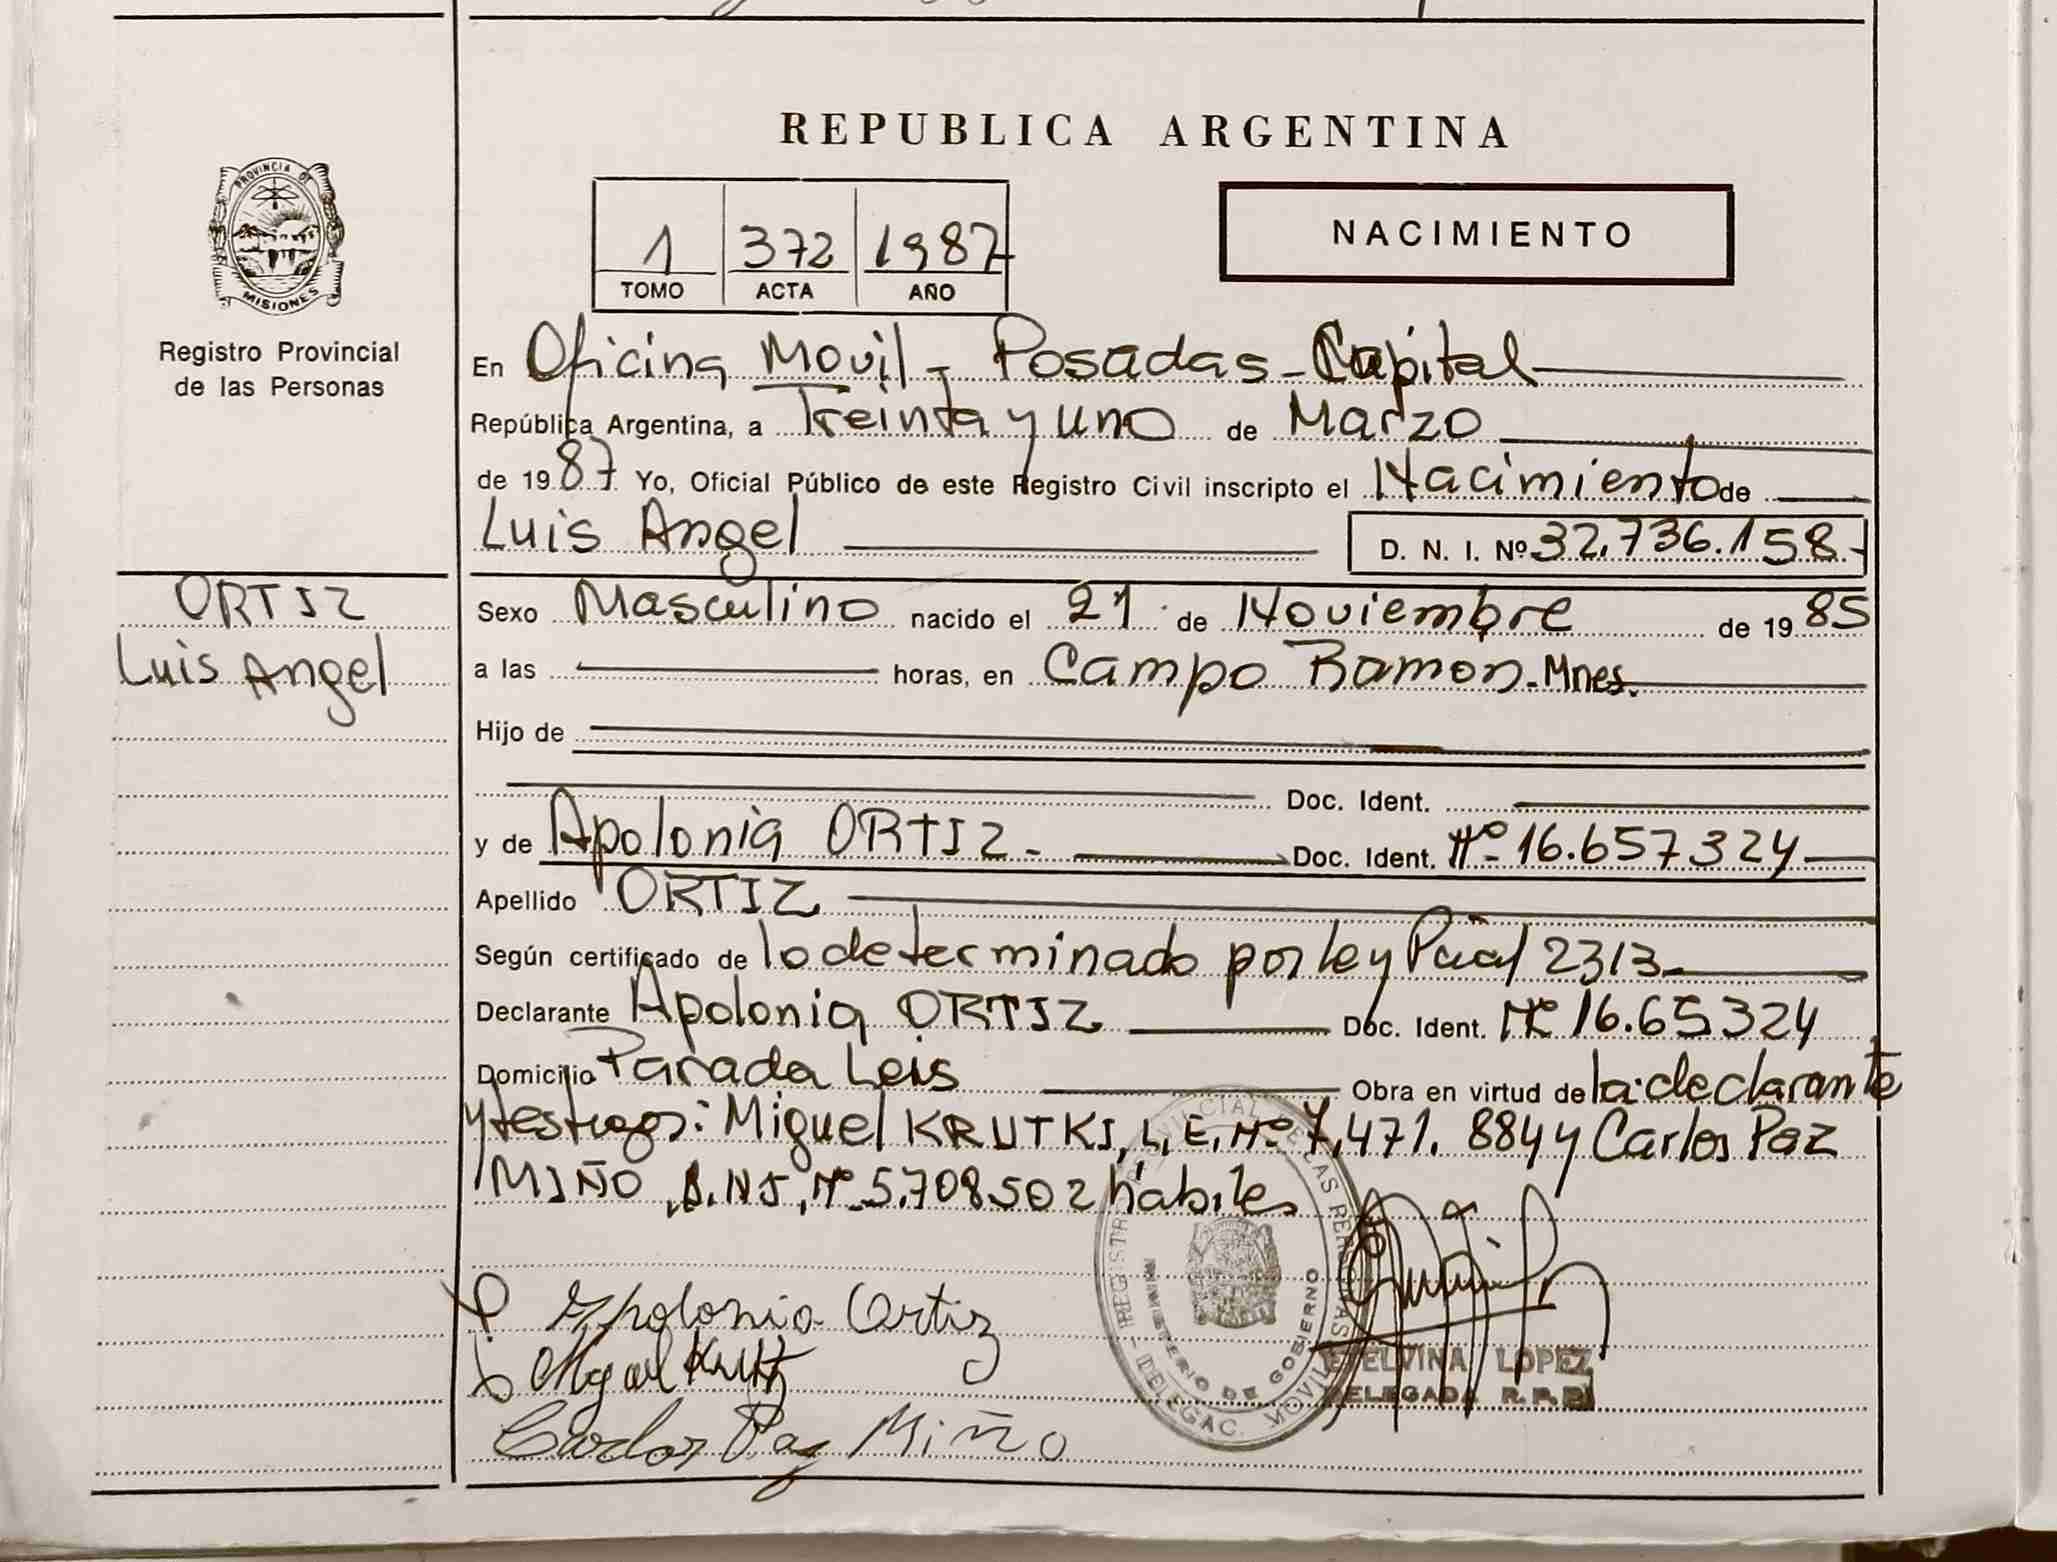 REPUBLICA ARGENTINA
PROVINCIA DE
MISIONES
Registro Provincial
de las Personas
1 372 1987
TOMO ACTA AÑO
NACIMIENTO
En Oficina Movil - Posadas - Capital
República Argentina, a Treinta y uno de Marzo
de 1987 Yo, Oficial Público de este Registro Civil inscripto el Nacimiento de
Luis Angel D. N. I. Nº 32.736.158.-
ORTIZ
Luis Angel
Sexo Masculino nacido el 21 de Noviembre de 1985
a las horas, en Campo Ramon - Mnes.
Hijo de
Doc. Ident.
y de Apolonia ORTIZ - Doc. Ident. Nº 16.657324
Apellido ORTIZ
Según certificado de lo determinado por ley Pcial 2313
Declarante Apolonia ORTIZ Doc. Ident. Nº 16.65324
Domicilio Parada Leis Obra en virtud de la declarante
y testigos: Miguel KRUTKI, L.E. Nº 7.471.884 y Carlos Paz
MIÑO, D.N.I. Nº 5.708502 habiles
Apolonia Ortiz
Miguel
Carlos Paz Miño
REGISTRO PROVINCIAL DE LAS PERSONAS
MINISTERIO DE GOBIERNO
DELEGAC. MOVIL
ETELVINA LOPEZ
DELEGADA R.P.P.